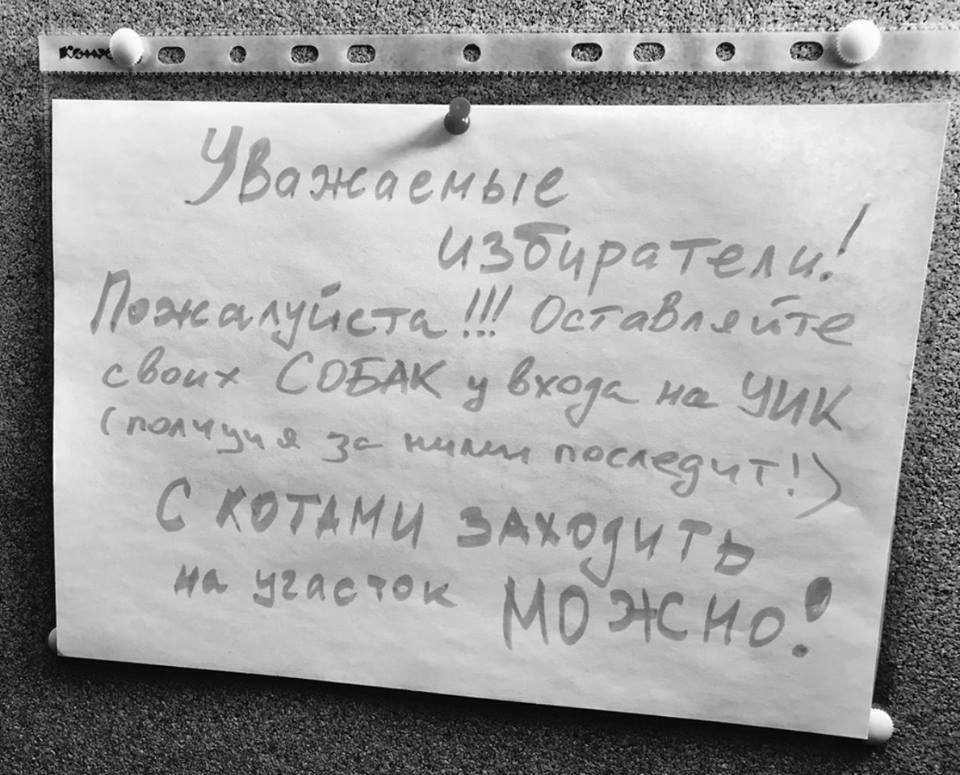 Комус
Уважаемые
избиратели!
Пожалуйста!!! Оставляйте
своих СОБАК у входа на УИК
(полиция за ними последит!)
С КОТАМИ ЗАХОДИТЬ
на участок МОЖНО!